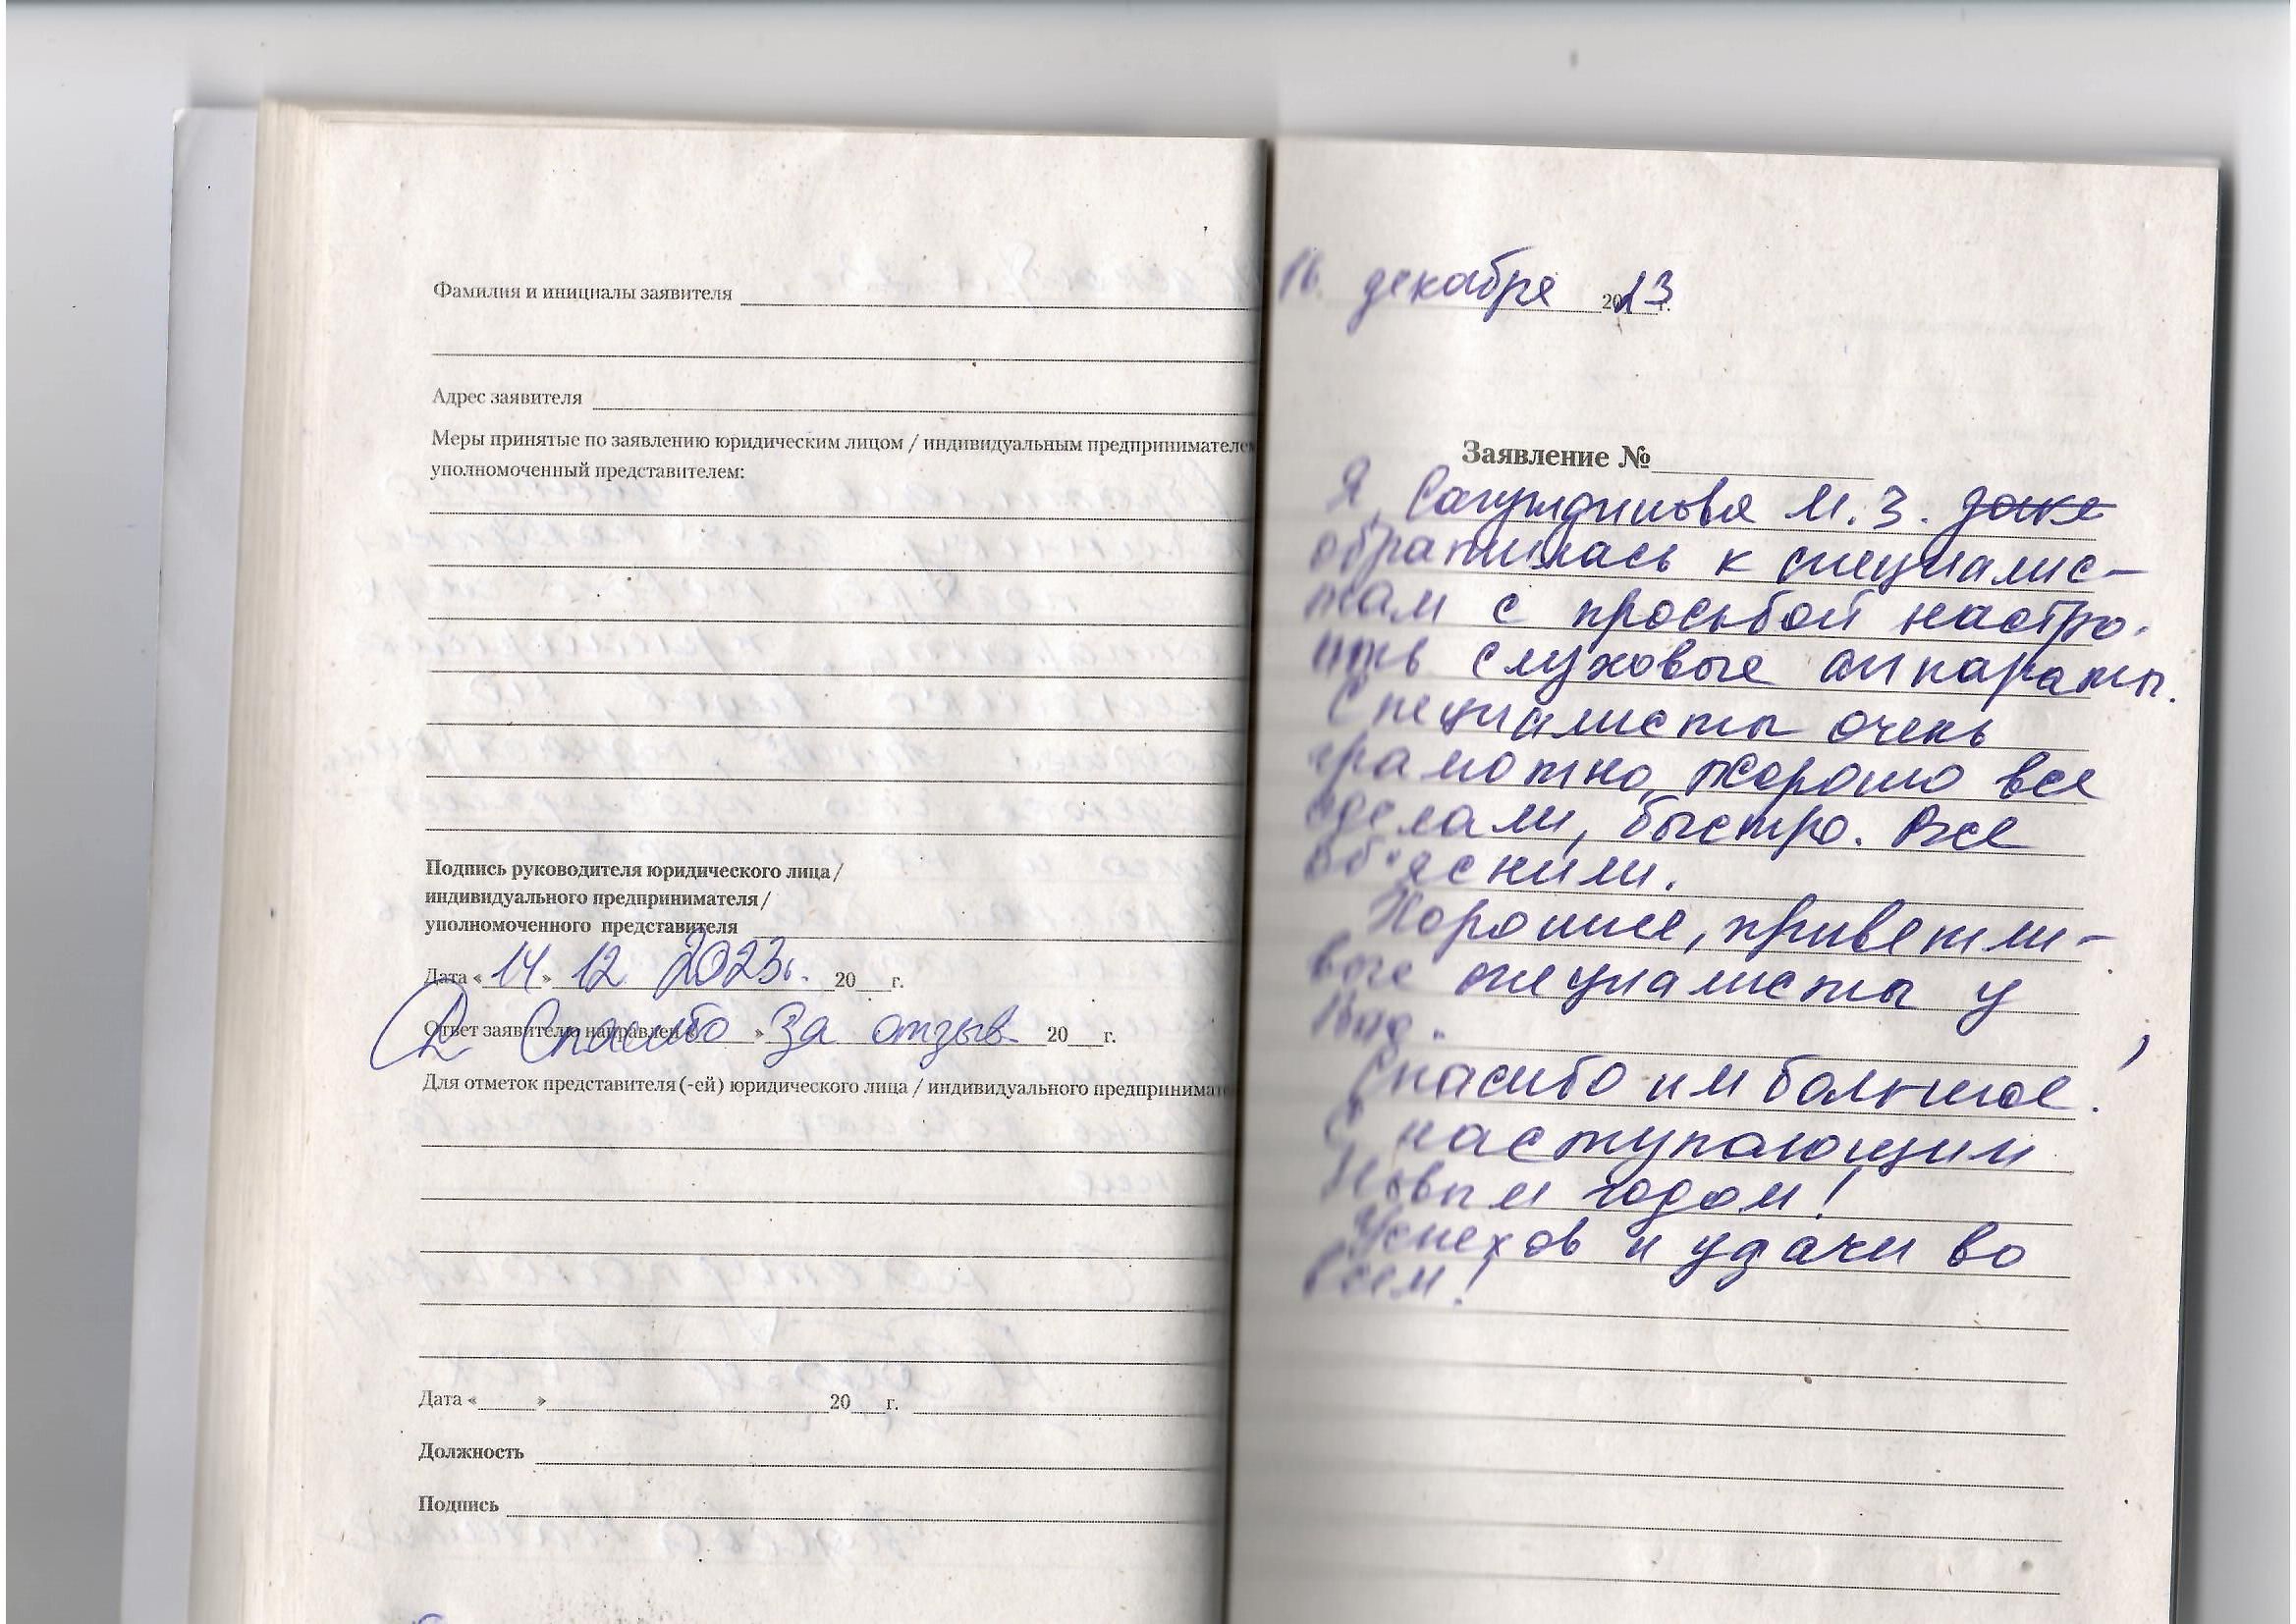 Фамилия и инициалы заявителя
Адрес заявителя
Меры принятые по заявлению юридическим лицом / индивидуальным предпринимателем
уполномоченный представителем:
Подпись руководителя юридического лица /
индивидуального предпринимателя /
уполномоченного представителя
Дата « 14 » 12 2023г. 20 г.
Ответ заявителю направлен « » 20 г.
Спасибо за отзыв
Для отметок представителя (-ей) юридического лица / индивидуального предпринимат
Дата « » 20 г.
Должность
Подпись
16 декабря 2023 г.
Заявление №
Я, М. З.
обратилась к специалис-
там с просьбой настро-
ить слуховые аппараты.
Специалисты очень
грамотно, хорошо все
сделали, быстро. Все
об'яснили.
Хорошие, приветли-
вые специалисты у
Вас.
Спасибо им большое!
С наступающим
Новым годом!
Успехов и удачи во
всем!